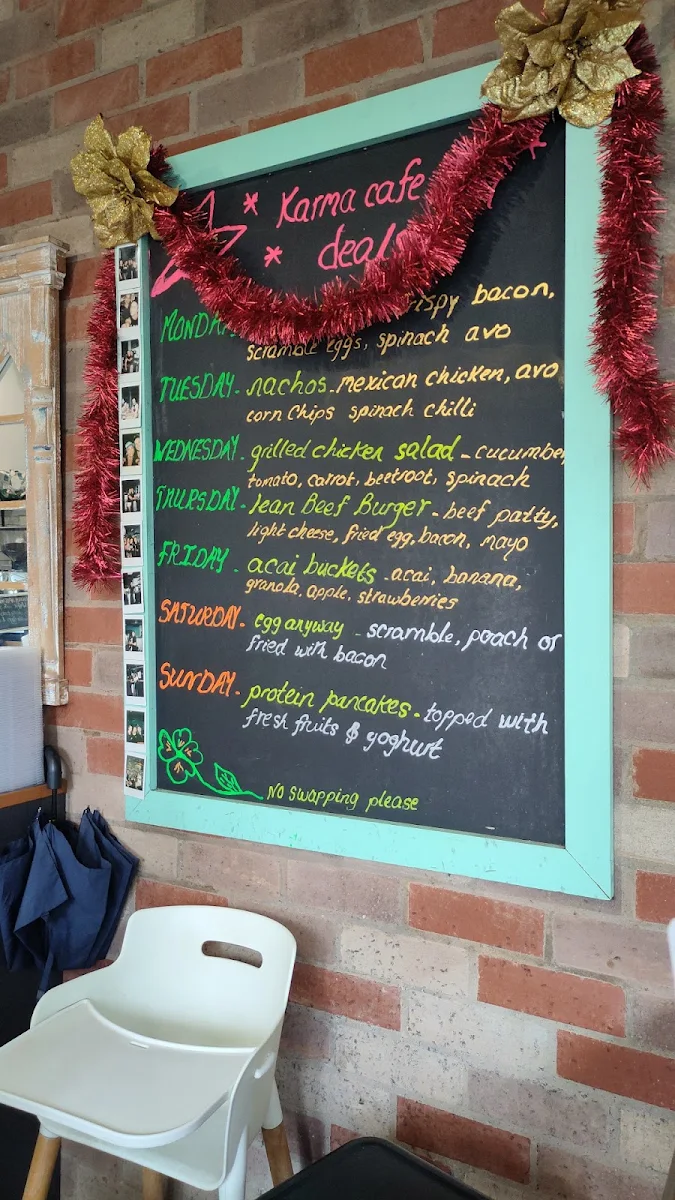 Karma cafe
deals
bacon,
MONDAY
scramble eggs, spinach avo
TUESDAY - nachos - mexican chicken, avo
corn chips spinach chilli
WEDNESDAY - grilled chicken salad - cucumber
tomato, carrot, beetroot, spinach
THURSDAY - lean Beef Burger - beef patty,
light cheese, fried egg, bacon, mayo
FRIDAY - acai buckets - acai, banana,
granola, apple, strawberries
SATURDAY - egg anyway - scramble, poach or
fried with bacon
SUNDAY - protein pancakes - topped with
fresh fruits & yoghurt
NO swapping please